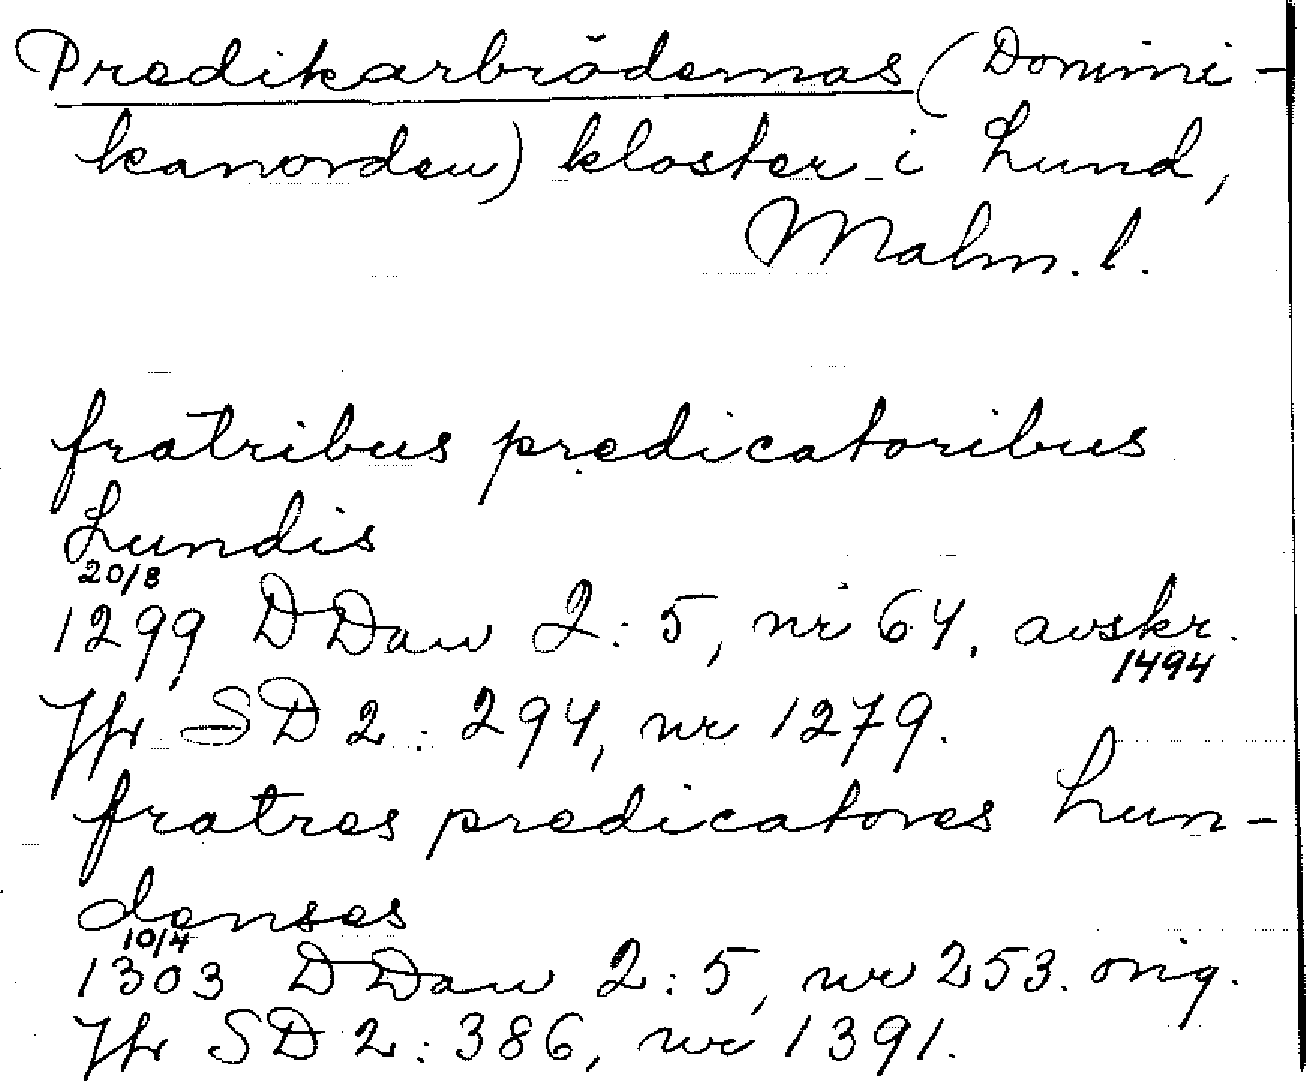 Predikarbrödernas (Domini-
kanorden) kloster i Lund,
Malm. l.
fratribus predicatoribus
Lundis
20/8
1299 DDan 2:5, nr 64. avskr.
1494
Jfr SD 2: 294, nr 1279.
fratres predicatores Lun-
denses
10/4
1303 DDan 2:5, nr 253. orig.
Jfr SD 2: 386, nr 1391.